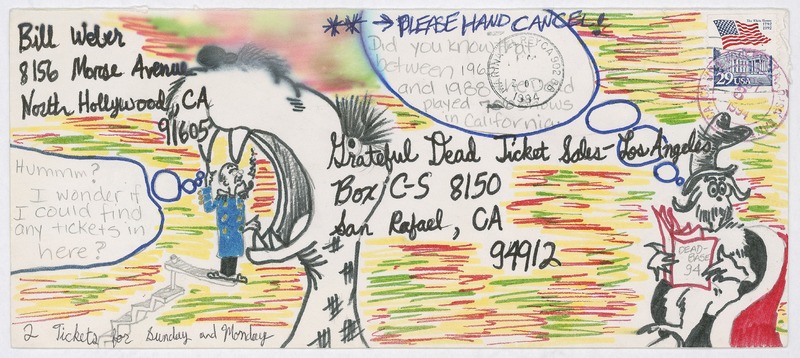 Bill Weber
8156 Morse Avenue
North Hollywood, CA
91605
** → PLEASE HAND CANCEL!
Did you know that
between 196
and 1988 the Dead
played shows
in California
29 USA
1994
1994
Grateful Dead Ticket Sales-Los Angeles
Box C-S 8150
San Rafael, CA
94912
Hummm?
I wonder if
I could find
any tickets in
here?
DEAD-
BASE
94
2 Tickets for Sunday and Monday